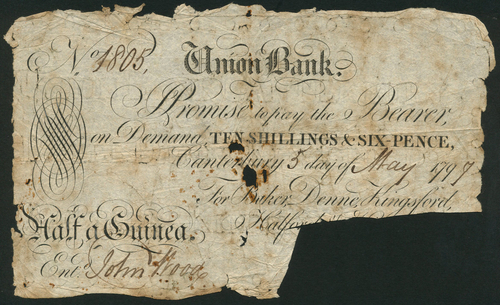 No. 1805, Union Bank.
I Promise to pay the Bearer,
on Demand, TEN SHILLINGS & SIX-PENCE,
Canterbury 5 day of May 1797
For Baker, Denne, Kingsford,
Half a Guinea.
Entd. John Wood